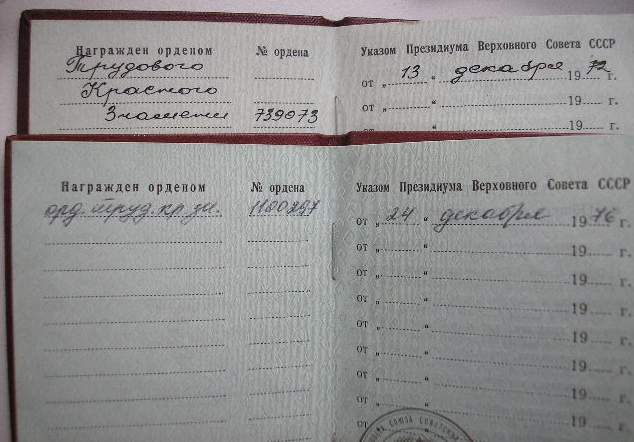 Награжден орденом № ордена Указом Президиума Верховного Совета СССР
Трудового от „ 13 “ декабря 1972 г.
Красного от „ “ 19 г.
Знамени 739073 от 19 г.
Награжден орденом № ордена Указом Президиума Верховного Совета СССР
орд. труд. кр. зн. 1100297 от „ 24 “ декабря 1976 г.
от „ “ 19 г.
от „ “ 19 г.
от „ “ 19 г.
от „ “ 19 г.
от „ “ 19 г.
от „ “ 19 г.
от „ “ 19 г.
СОЮЗА СОВЕТСКИХ